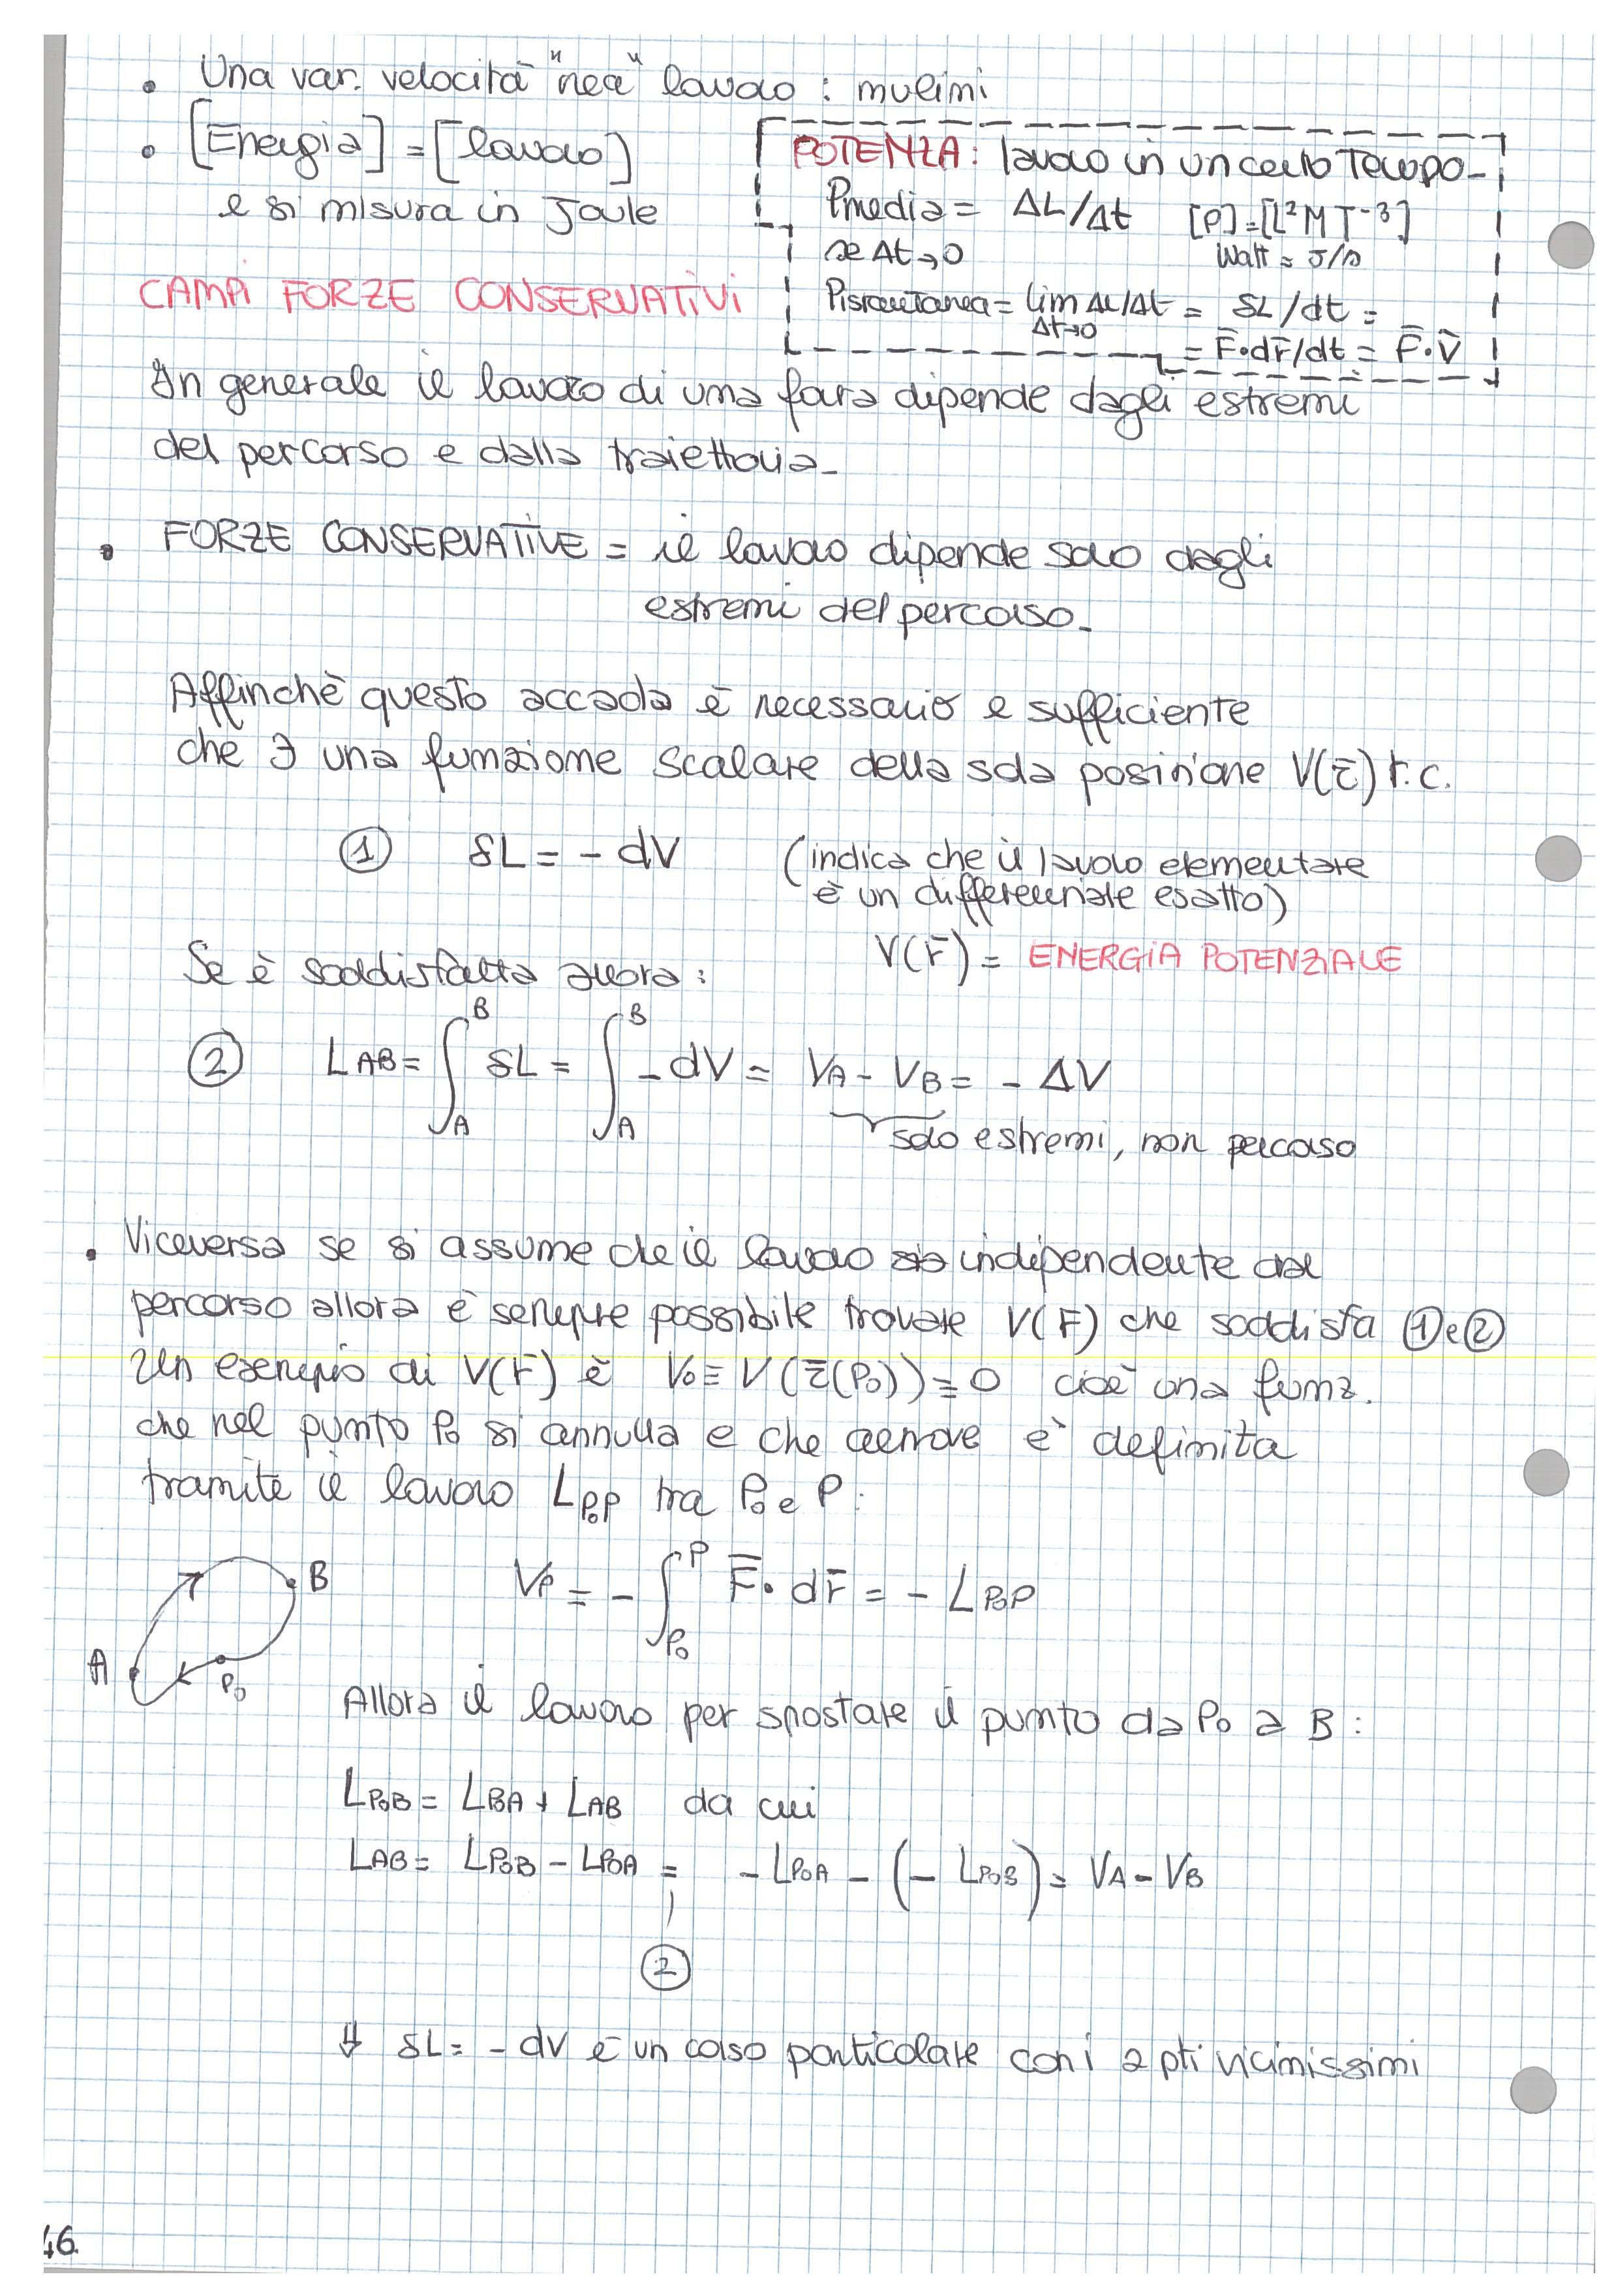 • Una var. velocità "nea" lavoro : mulini
• [Energia] = [lavoro]
e si misura in Joule
POTENZA: lavoro in un certo tempo_
Pmedia = ΔL/Δt [P]=[L²MT⁻³]
se Δt→0 Watt = J/s
Pistantanea = lim ΔL/Δt = δL/dt =
Δt→0
= F̄•dr̄/dt = F̄•v̄
CAMPI FORZE CONSERVATIVI
In generale il lavoro di una forza dipende dagli estremi
del percorso e dalla traiettoria_
• FORZE CONSERVATIVE = il lavoro dipende solo dagli
estremi del percorso_
Affinchè questo accada è necessario e sufficiente
che ∃ una funzione scalare della sola posizione V(r̄) t.c.
① δL = - dV (indica che il lavoro elementare
è un differenziale esatto)
V(r̄) = ENERGIA POTENZIALE
Se è soddisfatta allora:
② LAB = ∫_A^B δL = ∫_A^B - dV = VA - VB = - ΔV
solo estremi, non percorso
• Viceversa se si assume che il lavoro sia indipendente dal
percorso allora è sempre possibile trovare V(r̄) che soddisfa ① e ②
Un esempio di V(r̄) è V₀ ≡ V(r̄(P₀)) = 0 cioè una funz.
che nel punto P₀ si annulla e che altrove è definita
tramite il lavoro LP₀P tra P₀ e P:
VP = - ∫_P₀^P F̄• dr̄ = - LP₀P
B
A
P₀
Allora il lavoro per spostare il punto da P₀ a B :
LP₀B = LP₀A + LAB da cui
LAB = LP₀B - LP₀A = - LP₀A - (- LP₀B) = VA - VB
②
⇓ δL = - dV è un caso particolare con i 2 pti vicinissimi
46